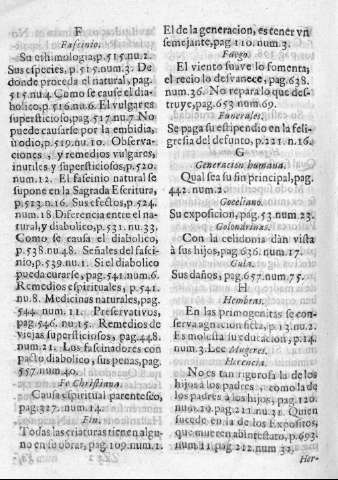 F
Fascinio.
Su ethimologia, p.515.nu.2.
Sus especies, p.515.num.3. De
donde proceda el natural, pag.
515. nu.4. Como se cause el dia-
bolico, p.516.nu.6. El vulgar es
supersticioso, pag.517.nu.7. No
puede causarse por la embidia,
ù odio, p.519.nu.10. Observa-
ciones, y remedios vulgares,
inutiles y supersticiosos, p.520.
num.12. El fascinio natural se
supone en la Sagrada Escritura,
p.523.n.16. Sus efectos, p.524.
num.18. Diferencia entre el na-
tural, y diabolico, p.531. nu.33.
Como se causa el diabolico,
p.538.nu.48. Señales del fasci-
nio, p.539.nu.1. Si el diabolico
pueda curarse, pag.541.num.6.
Remedios espirituales, p.541.
nu.8. Medicinas naturales, pag.
544. num.11. Preservativos,
pag.546. nu.15. Remedios de
viejas supersticiosos, pag.448.
num.21. Los fascinadores con
pacto diabolico, sus penas, pag.
557.num.40.
Fe Christiana.
Causa espiritual parentesco,
pag.327. num.14.
Fin.
Todas las criaturas tienen algu-
no en sò obrar, pag.109.num.1.
El de la generacion, es tener vn
semejante, pag.110.num.3.
Fuego.
El viento suave lo fomenta,
el recio lo desvanece, pag.638.
num.36. No repara lo que des-
truye, pag.653 num.69.
Funerales.
Se paga su estipendio en la feli-
gresia del defunto, p.221.n.16.
G
Generacion humana.
Qual sea su fin principal, pag.
442. num.2.
Goceliano.
Su exposicion, pag.53.num.23.
Golondrinas.
Con la celidonia dan vista
à sus hijos, pag.636. num.17.
Gula.
Sus daños, pag.657.num.75.
H
Hembras.
En las primogenitas se con-
serva agnacion ficta, p.13.nu.2.
Es molesta su educacion, p.14.
num.3. Lee Mugeres.
Herencia.
No es tan rigorosa la de los
hijos à los padres, como la de
los padres à los hijos, pag.120.
num.20. pag.211.nu.31. Quien
sucede en la de los Expositos,
que mueren abintestato, p.693.
num.21. pag.212. num.32.
Her-